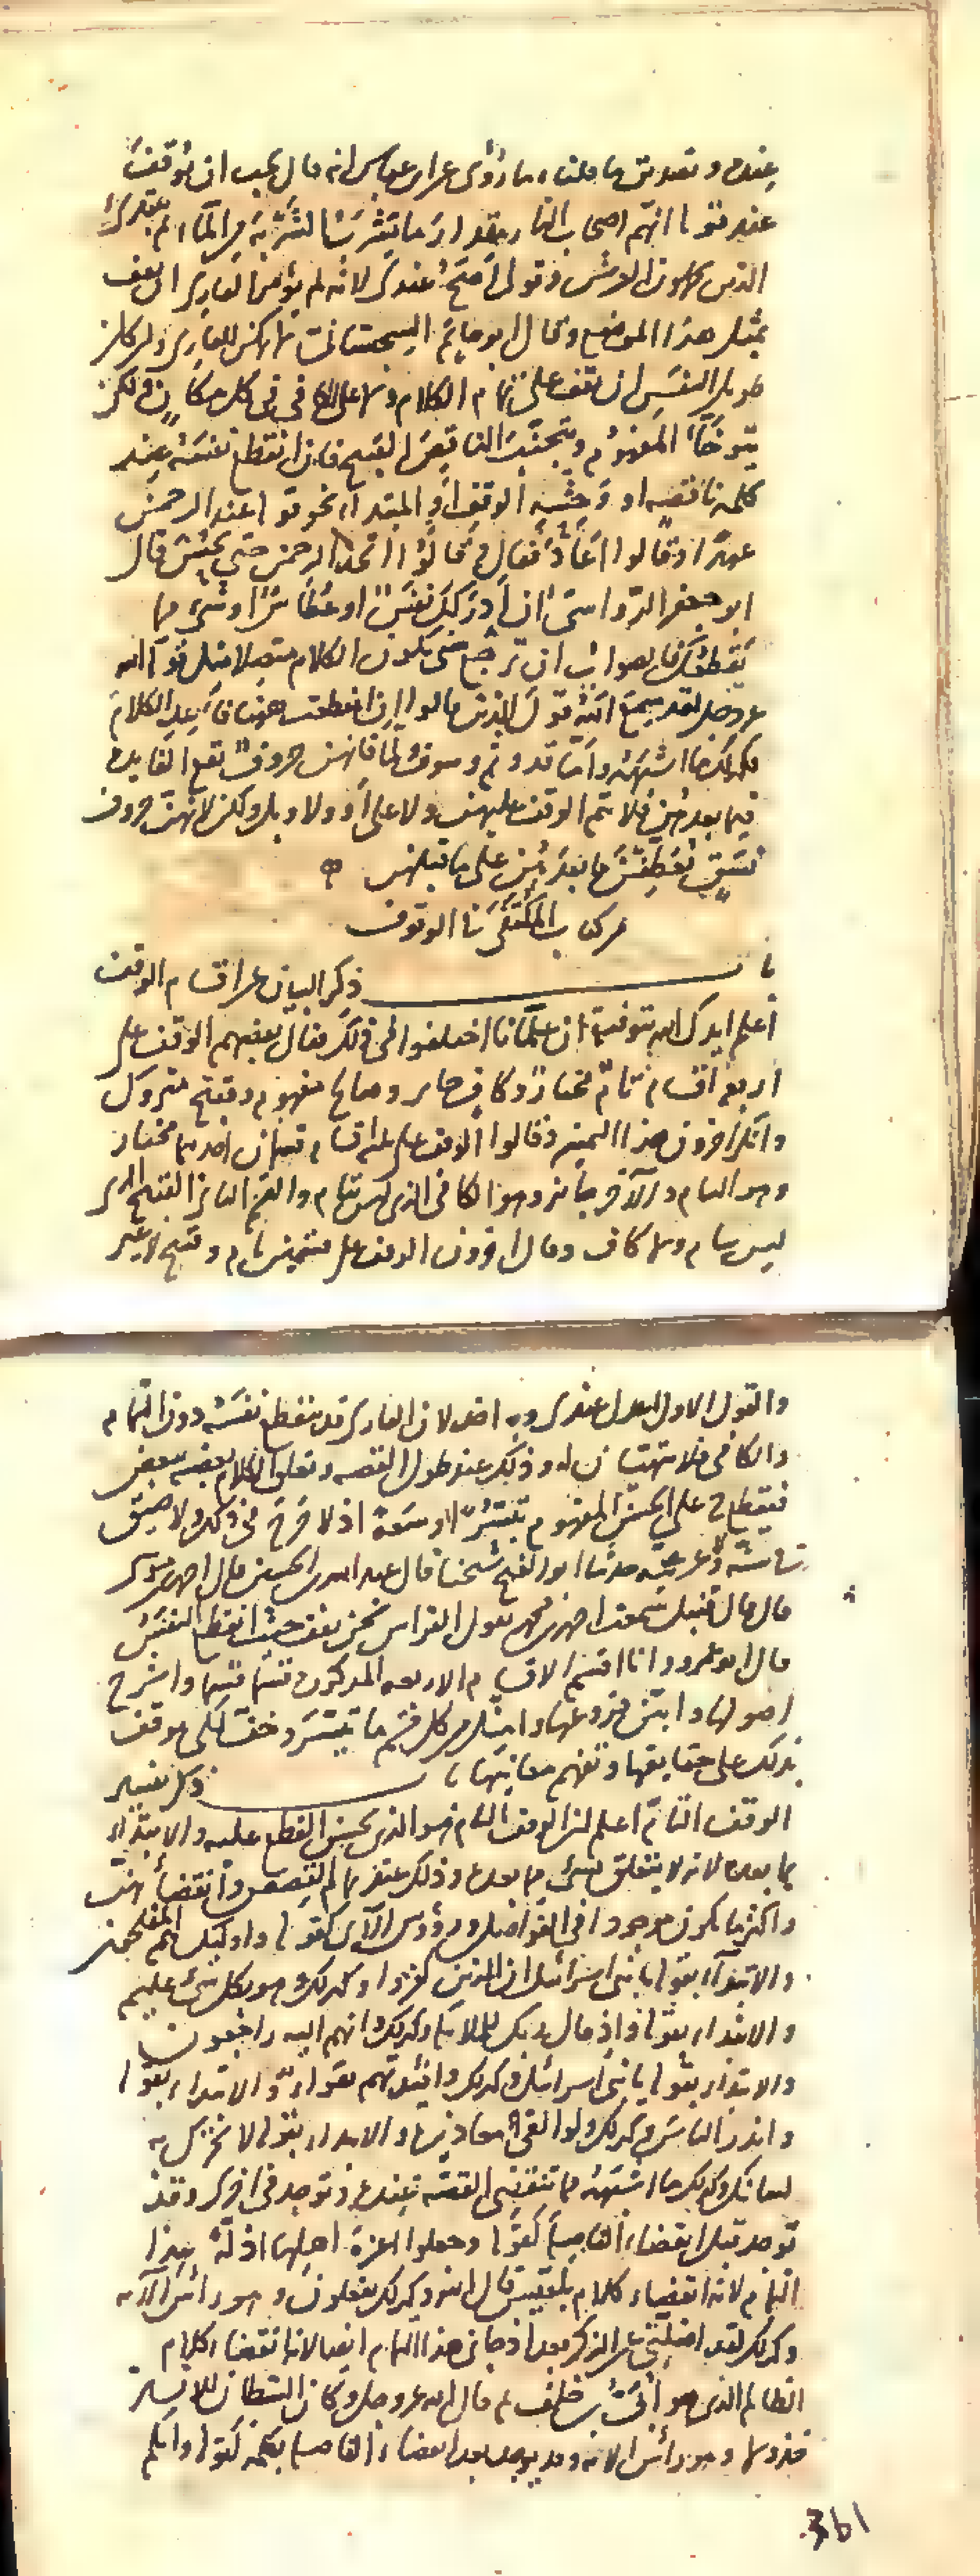 عنده وتصديق ما قلناه ما روي عن ابن عباس انه قال يجب ان يوقف
عند قوله انهم اصحاب النار مقدار ما يشرب الشربة من الماء ثم يبتدئ
الذين يحملون العرش وقولي اصح عندي لانه لم يؤمر القارئ ان يقف
بمثل هذا الموضع وقال ابو حاتم السجستاني لا يمكن للقارئ ولو كان
طويل النفس ان يقف على تمام الكلام ولا على الكافي في كل مكان ولكن
يتوخا المفهوم ويتجنب الناقص القبيح فان انقطع نفسه عند
كلمة ناقصة او وحشية الوقف او المبتدا نحو قوله عند الرحمن
عهدا وقالوا اعاد فقال وقالوا اتخذ الرحمن حتى يحسن قال
ابو جعفر الرواسي ان ادركك نفس او عطاس او شئ مما
يقطعك فالصواب ان ترجع حتى يكون الكلام متصلا مثل قول الله
عز وجل لقد سمع الله قول الذين قالوا ان انقطعت ههنا فاعد الكلام
وكذلك ما اشبهه واما قد وثم وسوف لما فانهن حروف تقع الفايدة
فيما بعدهن فلا يتم الوقف عليهن ولا على او ولا وبل ولكن لانهن حروف
نسق تعطف ما بعدهن على ما قبلهن
من كتاب المكتفى نا الوقوف
باب ذكر البيان عن اقسام الوقف
اعلم ايدك الله بتوفيقه ان علمانا اختلفوا في ذلك فقال بعضهم الوقف على
اربعة اقسام تام مختار وكاف جايز وصالح مفهوم وقبيح متروك
وانكر اخرون هذا التمييز وقالوا الوقف على ثلاثة اقسام قسمان احدهما مختار
وهو التام والاخر جايز وهو الكافي الذي ليس بتام والقسم الثالث القبيح الذي
ليس بتام ولا كاف وقال اخرون الوقف على قسمين تام وقبيح لا غير
والقول الاول اعدل عندي وبه اخذ لان القارئ قد ينقطع نفسه دون التمام
والكافي فلا يتهيان له وذلك عند طول القصة وتعلق الكلام بعضه ببعض
فيقطع على الحسن المفهوم تيسيرا وسعة اذ لا حرج في ذلك ولا ضيق
في سنة ولا عربية حدثنا ابو الفتح شيخنا قال عبد الله بن الحسين قال احمد بن موسى
قال قال قنبل سمعت احمد بن محمد يقول القواس نحن نقف حيث انقطع النفس
قال ابو عمرو وانا اقسم الاقسام الاربعة المذكورة قسما قسما واشرح
اصولها وابين فروعها وامثل من كل قسم ما تيسر وخف لكي يوقف
بذلك على حقايقها وتفهم معانيها باب ذكر تفسير
الوقف التام اعلم ان الوقف التام هو الذي يحسن القطع عليه والابتداء
بما بعده لانه لا يتعلق بشئ مما بعده وذلك عند تمام القصص وانقضائهن
واكثر ما يكون موجودا في الفواصل ورؤوس الآي كقوله واوليك هم المفلحون
والابتداء بقوله يا بني اسرائيل ان الذين كفروا وكذلك وهو بكل شئ عليم
والابتداء بقوله واذ قال ربك للملائكة وكذلك وانهم اليه راجعون
والابتداء بقوله يا بني اسرائيل وكذلك وافئدتهم هواء والابتداء بقوله
وانذر الناس وكذلك ولو القى معاذيره والابتداء بقوله لا تحرك به
لسانك وكذلك ما اشبهه مما تنقضي القصة عنده وتوجد في اخره وقد
توجد قبل انقضاء الفاصلة كقوله وجعلوا اعزة اهلها اذلة هذا
التمام لانه انقضاء كلام بلقيس قال الله وكذلك يفعلون وهو رأس الآية
وكذلك لقد اضلني عن الذكر بعد اذ جاني هذا التمام ايضا لانه انقضاء كلام
الظالم الذي هو ابي بن خلف ثم قال الله عز وجل وكان الشيطان للانسان
خذولا وهو رأس الآية وقد يوجد بعد انقضاء الفاصلة بكلمة كقوله وانكم
361